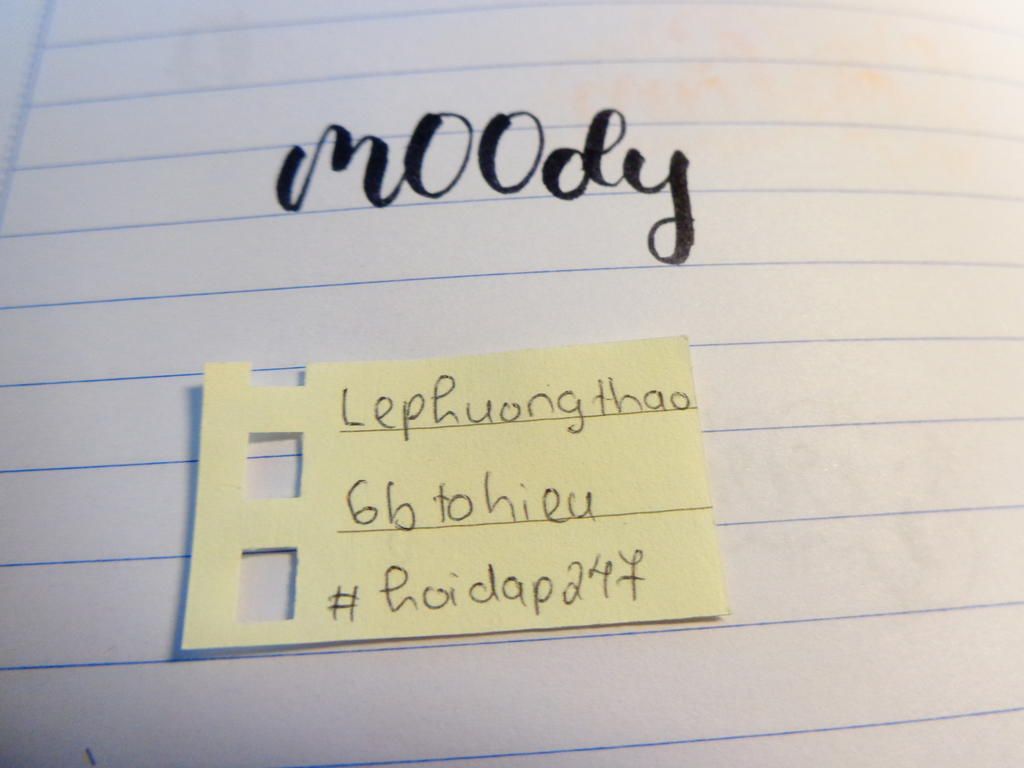 mOOdy
Lephuongthao
6b tohieu
#hoidap247